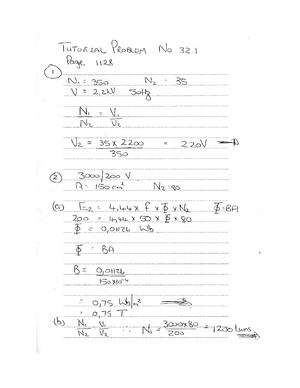 TUTORIAL PROBLEM No 32.1
Page 1128
①
N₁ = 350 N₂ = 35
V = 2,2kV 50Hz
N₁/N₂ = V₁/V₂
V₂ = 35 x 2200 / 350 = 220V
② 3000/200 V
A = 150 cm² N₂ = 80
(a) E₂ = 4,44 x f x Φ x N₂ Φ = BA
200 = 4,44 x 50 x Φ x 80
Φ = 0,01126 Wb
Φ = BA
B = 0,01126 / 150x10⁻⁴
= 0,75 Wb/m²
= 0,75 T
(b) N₁/N₂ = V₁/V₂ ∴ N₁ = 3000x80 / 200 = 1200 turns